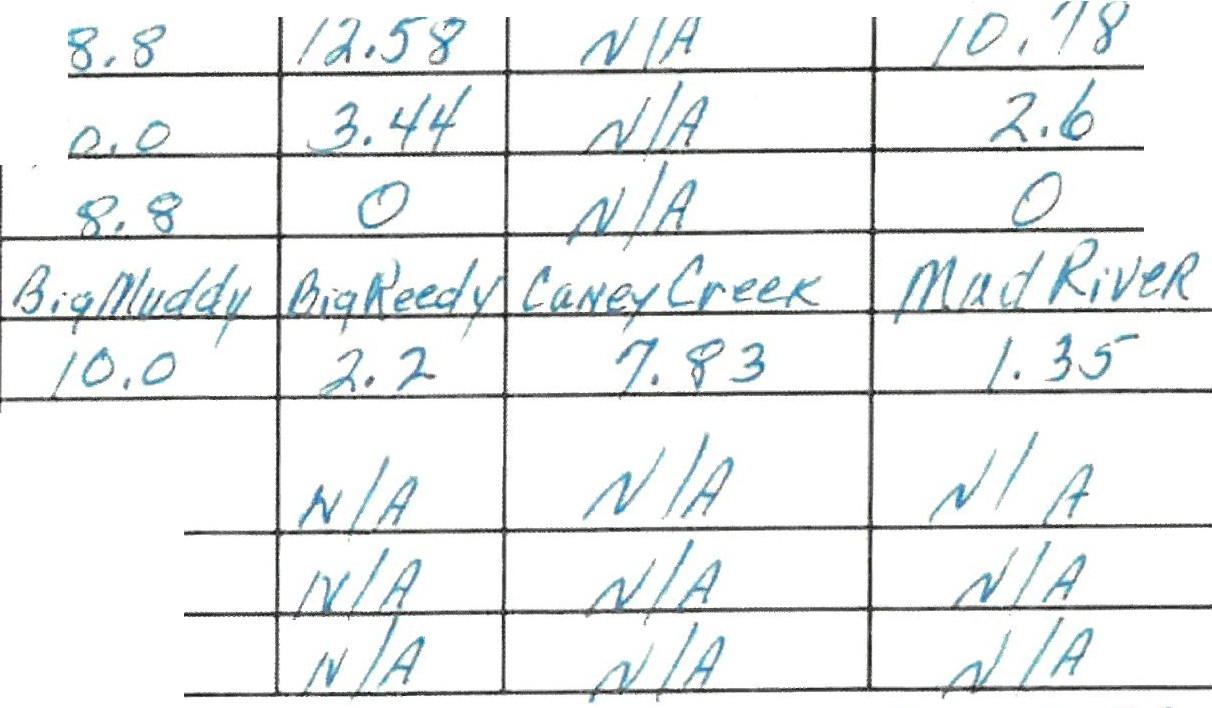 8.8 12.58 N/A 10.78
0.0 3.44 N/A 2.6
8.8 0 N/A 0
Big Muddy Big Reedy Caney Creek Mud River
10.0 2.2 7.83 1.35
N/A N/A N/A
N/A N/A N/A
N/A N/A N/A